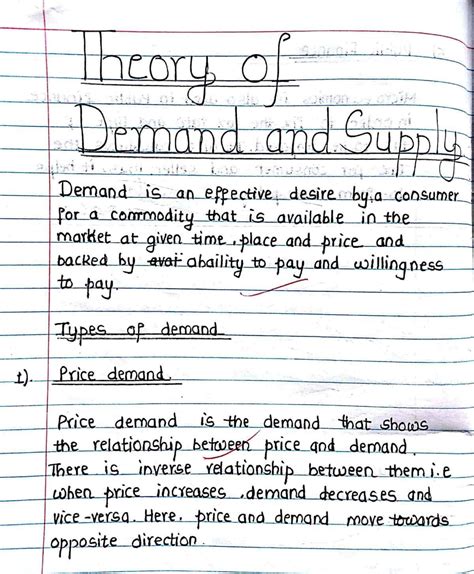 Theory of
Demand and Supply
Demand is an effective desire by a consumer
for a commodity that is available in the
market at given time, place and price and
backed by avai abaility to pay and willingness
to pay.
Types of demand
1). Price demand.
Price demand is the demand that shows
the relationship between price and demand.
There is inverse relationship between them i.e
when price increases, demand decreases and
vice-versa. Here, price and demand move towards
opposite direction.